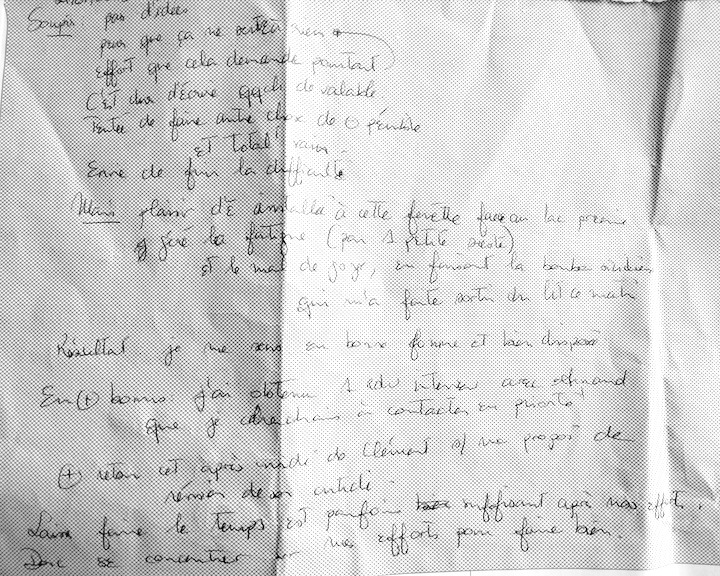 Soupir pas d'idées
peur que ça ne rien
effort que cela demande pourtant
C'est dur d'écrire qqch de valable
Tentée de faire autre chose de ⊖ pénible
et total
Envie de fuir la difficulté
Mais plaisir d'ê installée à cette fenêtre face au lac
géré la fatigue (par 1 petite sieste)
et le mal de , en faisant la
qui m'a faite sortir du lit ce matin
Résultat je me sens en bonne forme et bien disposée
En (+) bonus : j'ai obtenu 1 rdv avec
que je cherchais à contacter en priorité
(+) retour cet après midi de Clément s/ ma propos de
révision de son article
Laisser faire le temps est parfois suffisant après nos efforts.
nos efforts pour faire bien.
Donc se concentrer sur